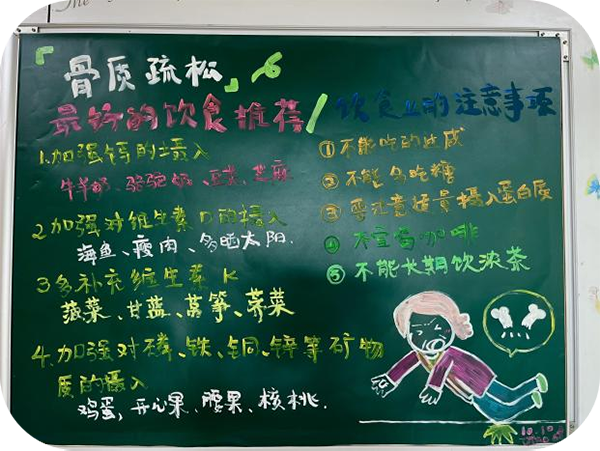 The
「骨质疏松」
最好的饮食推荐/饮食上的注意事项
1.加强钙的摄入
牛羊奶、骆驼奶、豆浆、芝麻
2.加强对维生素D的摄入
海鱼、瘦肉、多晒太阳.
3多补充维生素K
菠菜、甘蓝、莴笋、荠菜
4.加强对磷、铁、铜、锌等矿物
质的摄入
鸡蛋、开心果、腰果、核桃.
①不能吃的过咸
②不能多吃糖
③要注意适量摄入蛋白质
④不宜喝咖啡
⑤不能长期饮浓茶
10.10